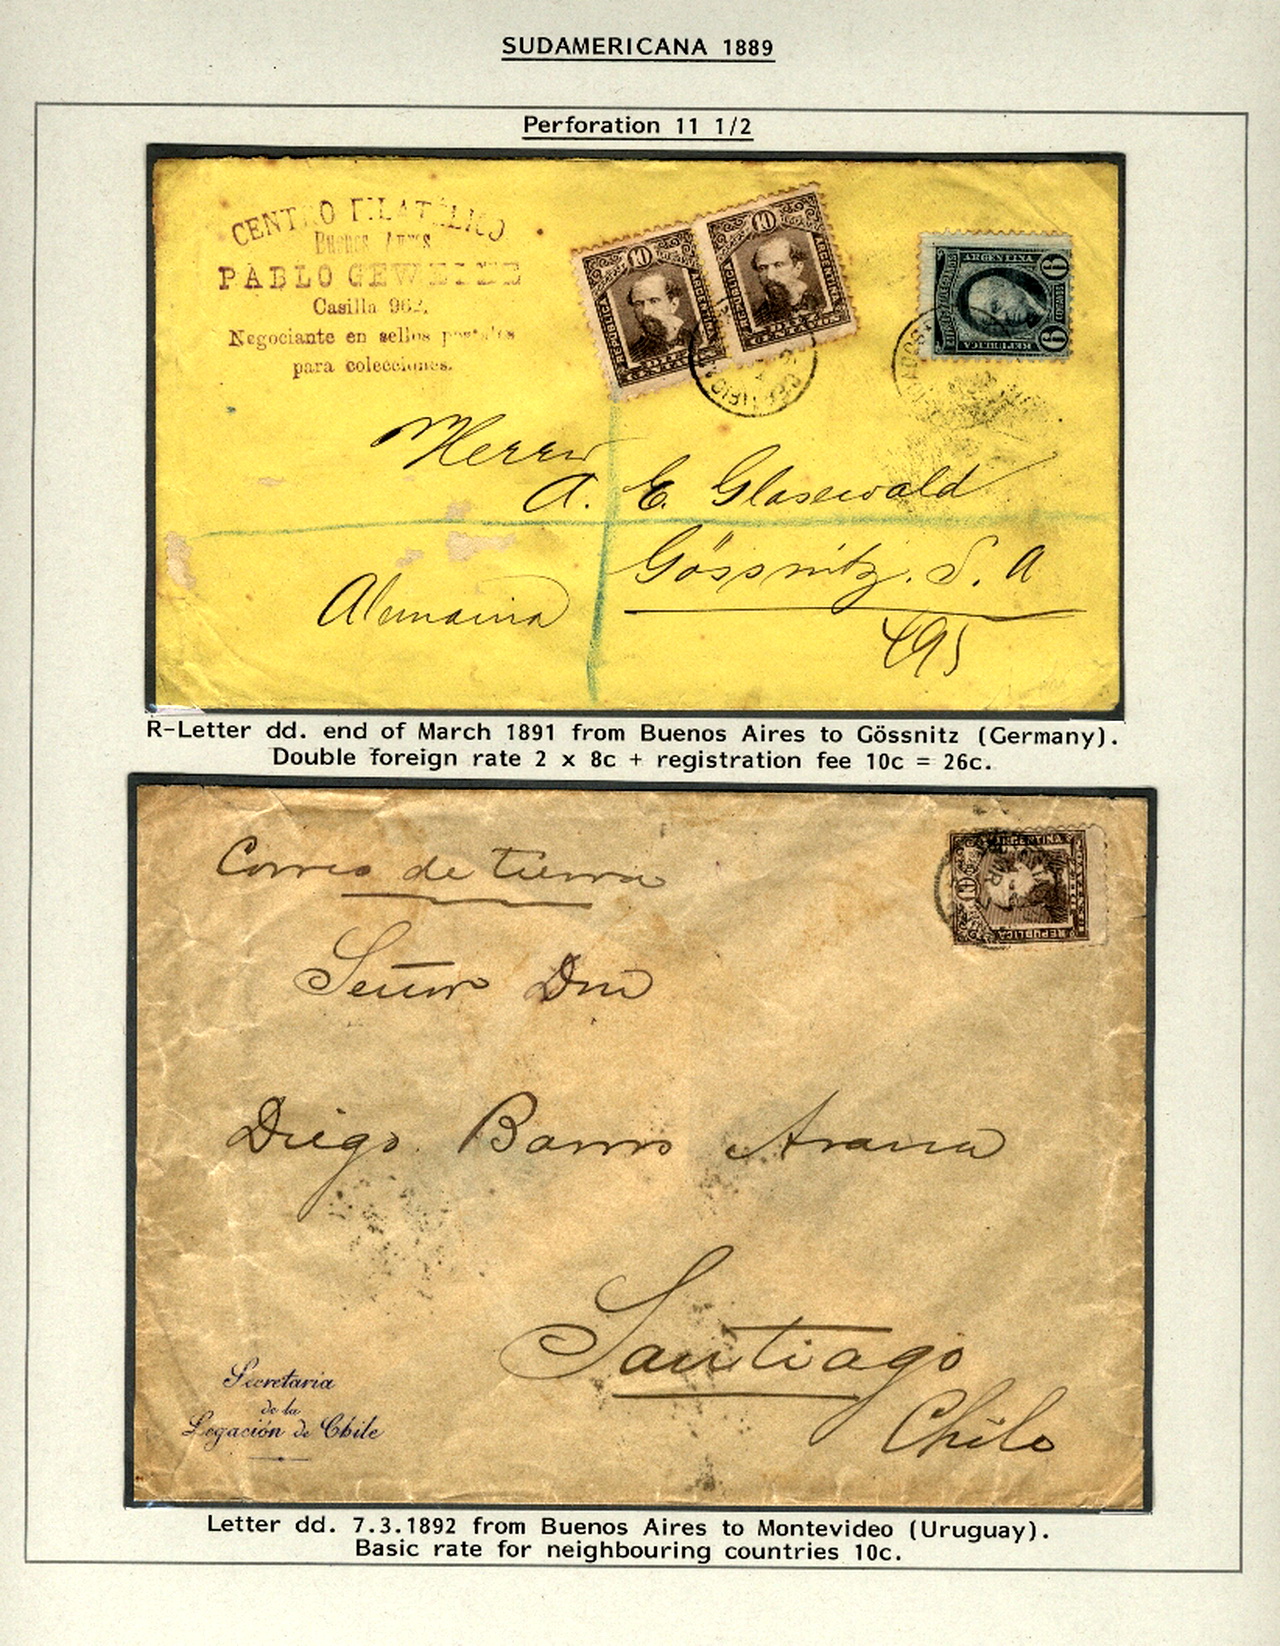 SUDAMERICANA 1889
Perforation 11 1/2
CENTRO FILATÉLICO
Buenos Aires
PABLO
Casilla 962.
Negociante en sellos postales
para colecciones.
10
REPUBLICA
ARGENTINA
10
REPUBLICA
ARGENTINA
6
ARGENTINA
REPUBLICA
6
Herrn
A. E. Glasewald
Gössnitz. S. A
Alemania
495
R-Letter dd. end of March 1891 from Buenos Aires to Gössnitz (Germany).
Double foreign rate 2 x 8c + registration fee 10c = 26c.
Correo de tierra
10
ARGENTINA
REPUBLICA
Señor Don
Diego Barros Arana
Santiago
Chile
Secretaria
de la
Legación de Chile
Letter dd. 7.3.1892 from Buenos Aires to Montevideo (Uruguay).
Basic rate for neighbouring countries 10c.